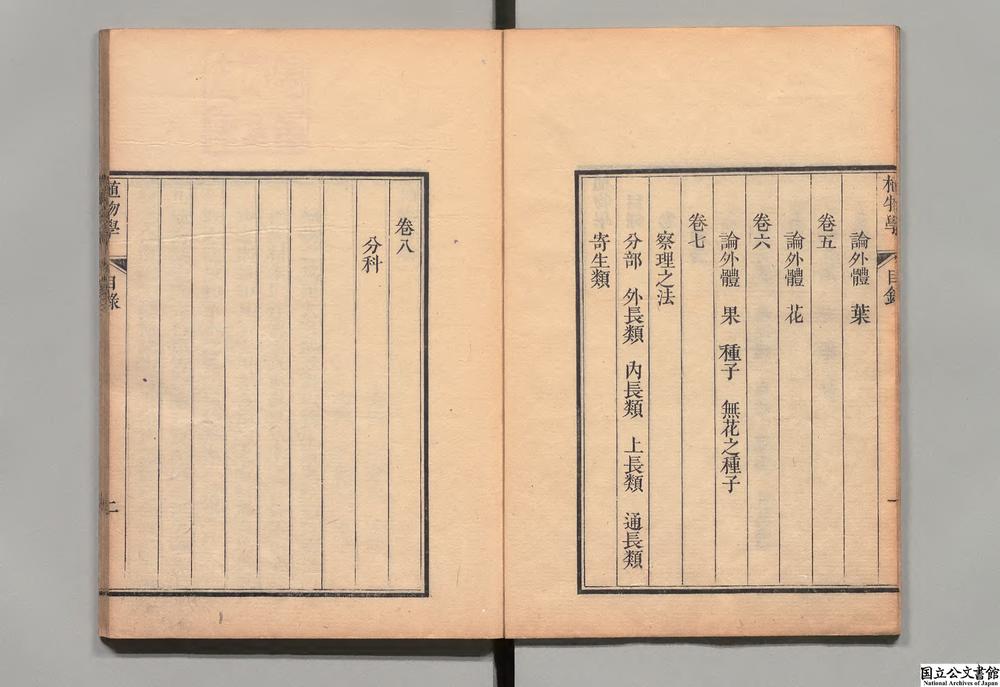 植物學 目錄 一
論外體 葉
卷五
論外體 花
卷六
論外體 果 種子 無花之種子
卷七
察理之法
分部 外長類 內長類 上長類 通長類
寄生類
卷八
分科
植物學 目錄 二
国立公文書館
National Archives of Japan